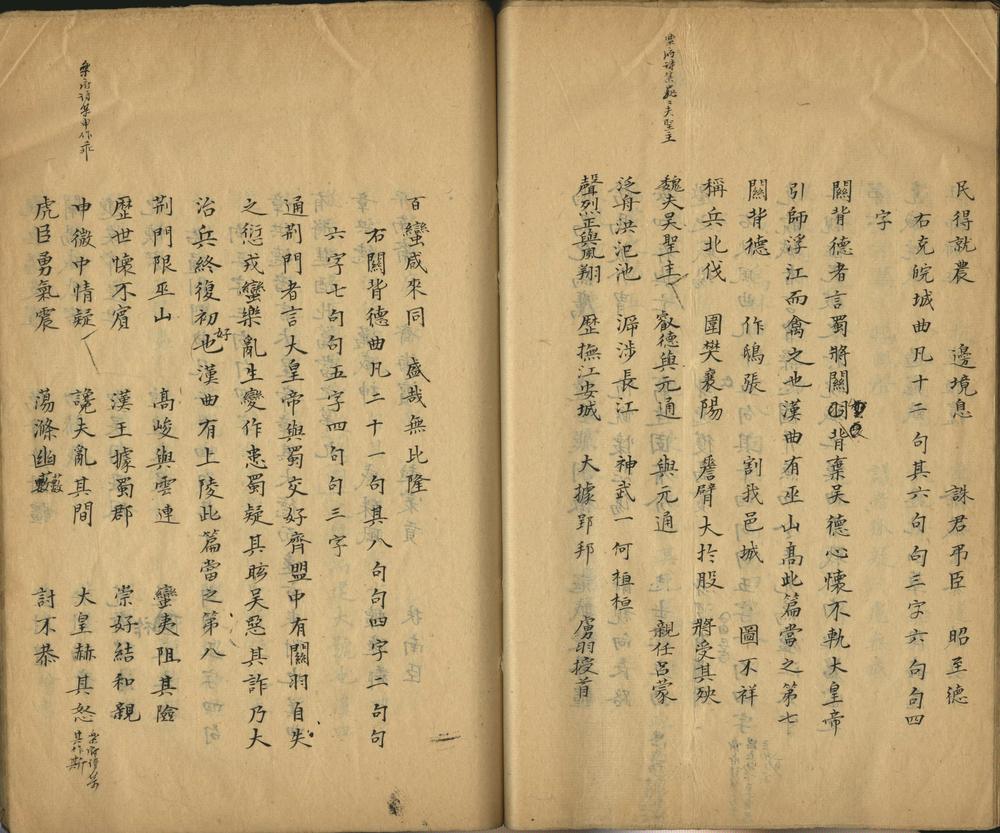 民得就農 邊境息 誅君弔臣 昭至德
右克皖城曲凡十二句其六句句三字六句句四
字
關背德者言蜀將關羽背棄吳德心懷不軌大皇帝
引師浮江而禽之也漢曲有巫山高此篇當之第七
關背德 作鴟張 割我邑城 圖不祥
稱兵北伐 圍樊襄陽 嗟臂大於股 將受其殃
魏夫吳聖主 叡德與元通 與元通 親任呂蒙
泛舟洪氾池 泝涉長江 神武一何桓桓
聲烈正與風翔 歷撫江安城 大據郢邦 虜羽授首
百蠻咸來同 盛哉無比隆
右關背德曲凡二十一句其八句句四字三句句
六字七句句五字四句句三字
通荆門者言大皇帝與蜀交好齊盟中有關羽自失
之愆戎蠻樂亂生變作患蜀疑其眩吳惡其詐乃大
治兵終復初好也漢曲有上陵此篇當之第八
荆門限巫山 高峻與雲連 蠻夷阻其險
歷世懷不賓 漢王據蜀郡 崇好結和親
中微中情疑 讒夫亂其間 大皇赫其怒
虎臣勇氣震 蕩滌幽藪 討不恭
樂府詩集中作乖